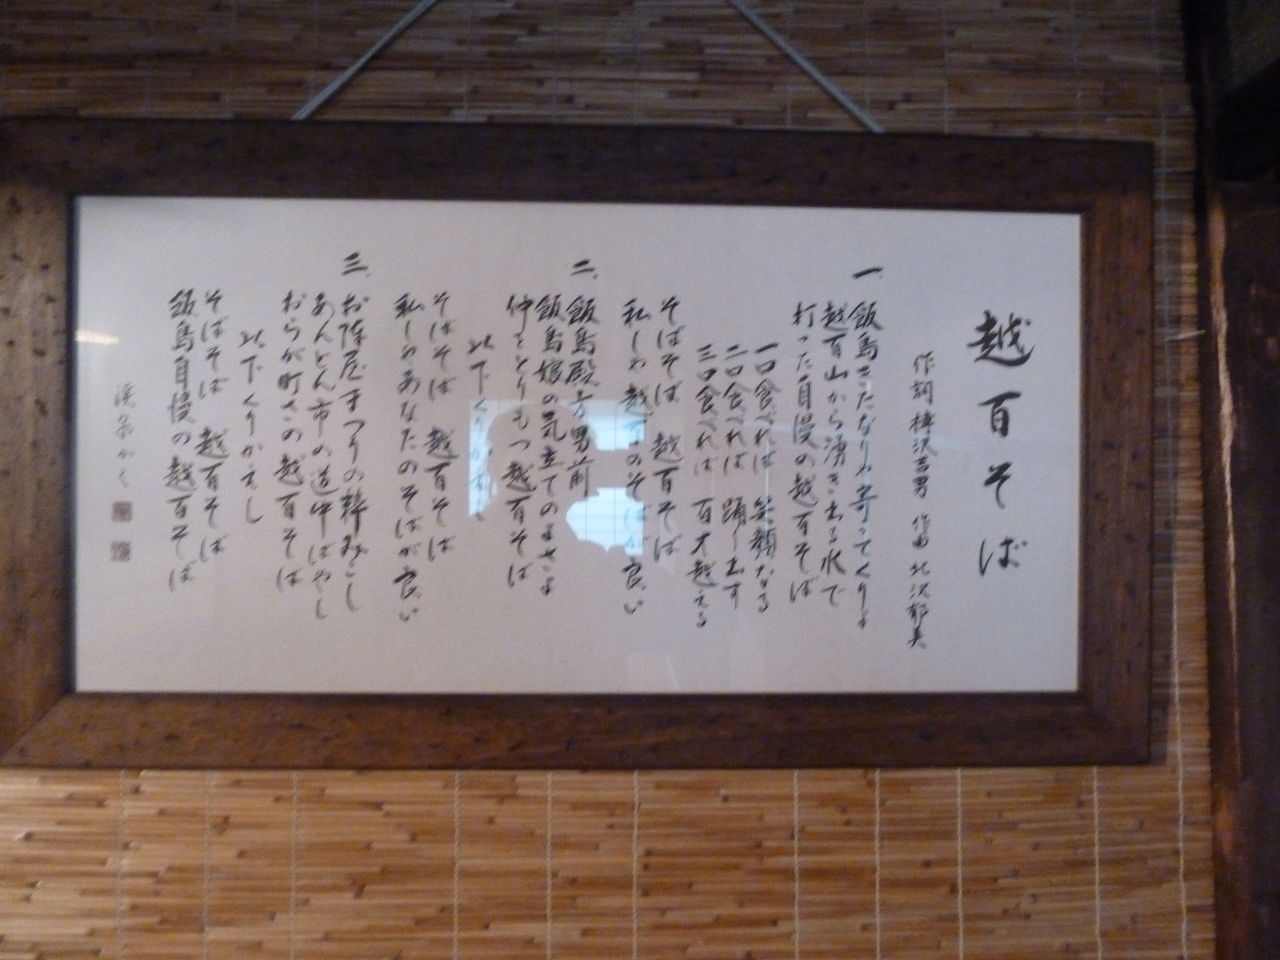 越百そば
作詞 樽沢吉男 作曲 北沢郁美
一、飯島きたなりゃ寄ってくりょ
越百山から湧き出る水で
打った自慢の越百そば
一口食べれば 笑顔なる
二口食べれば 踊り出す
三口食べれば 百才越える
そばそば 越百そば
私しゃ越百のそばが良い
二、飯島殿方男前
飯島娘の気立てのよさよ
仲をとりもつ越百そば
以下くりかえし
そばそば 越百そば
私しゃあなたのそばが良い
三、お陣屋まつりの粋みこし
あんどん市の道中ばやし
おらが町さの越百そば
以下くりかえし
そばそば 越百そば
飯島自慢の越百そば